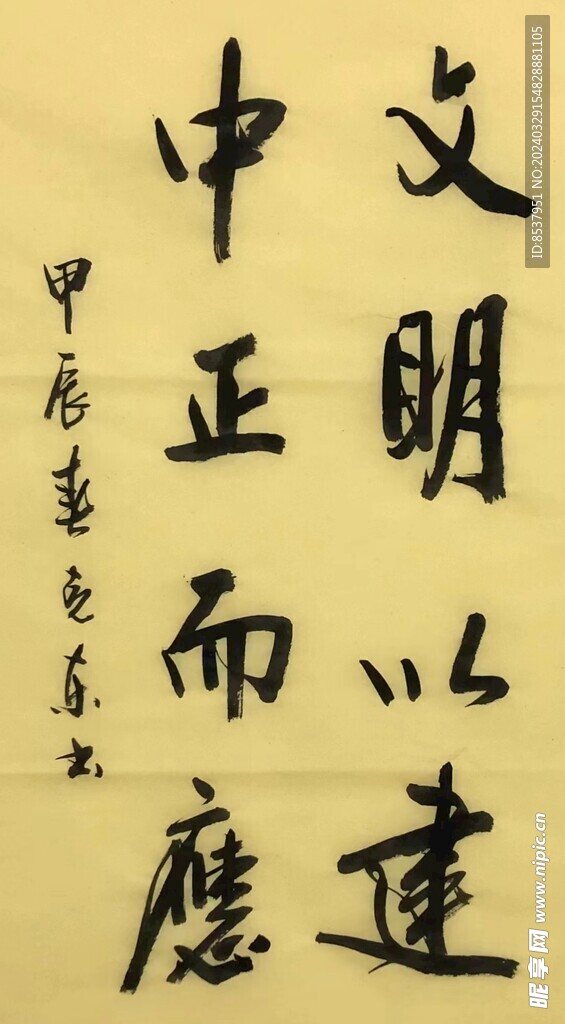 文明以建
中正而應
甲辰春克東书
ID:8537951 NO:20240329154828881105
昵享网 www.nipic.cn